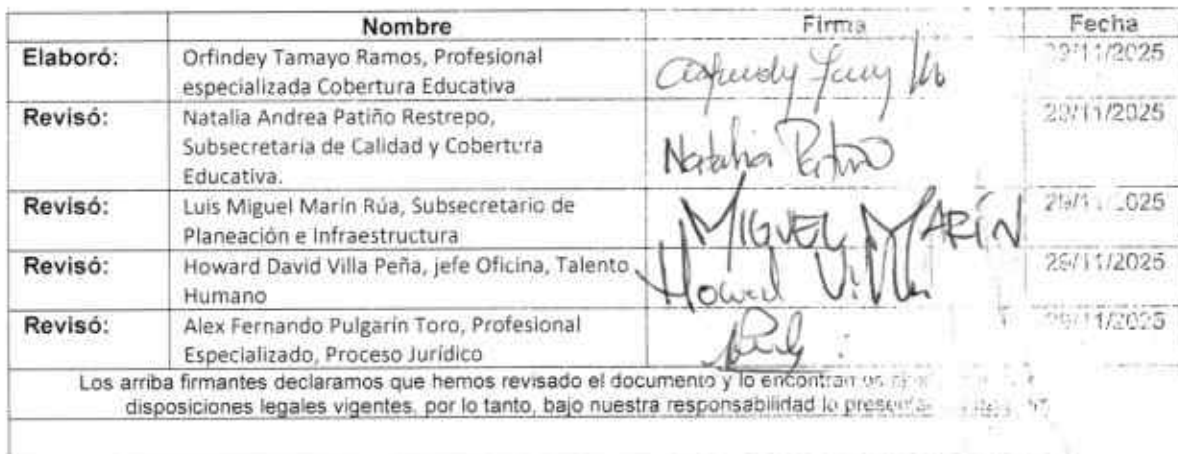 Nombre Firma Fecha
Elaboró: Orfindey Tamayo Ramos, Profesional 29/11/2025
especializada Cobertura Educativa
Revisó: Natalia Andrea Patiño Restrepo, 29/11/2025
Subsecretaria de Calidad y Cobertura Natalia Patiño
Educativa.
Revisó: Luis Miguel Marín Rúa, Subsecretario de MIGUEL MARÍN
Planeación e Infraestructura
Revisó: Howard David Villa Peña, jefe Oficina, Talento 29/11/2025
Humano Howard Villa
Revisó: Alex Fernando Pulgarín Toro, Profesional 29/11/2025
Especializado, Proceso Jurídico
Los arriba firmantes declaramos que hemos revisado el documento y lo encontramos
disposiciones legales vigentes, por lo tanto, bajo nuestra responsabilidad lo